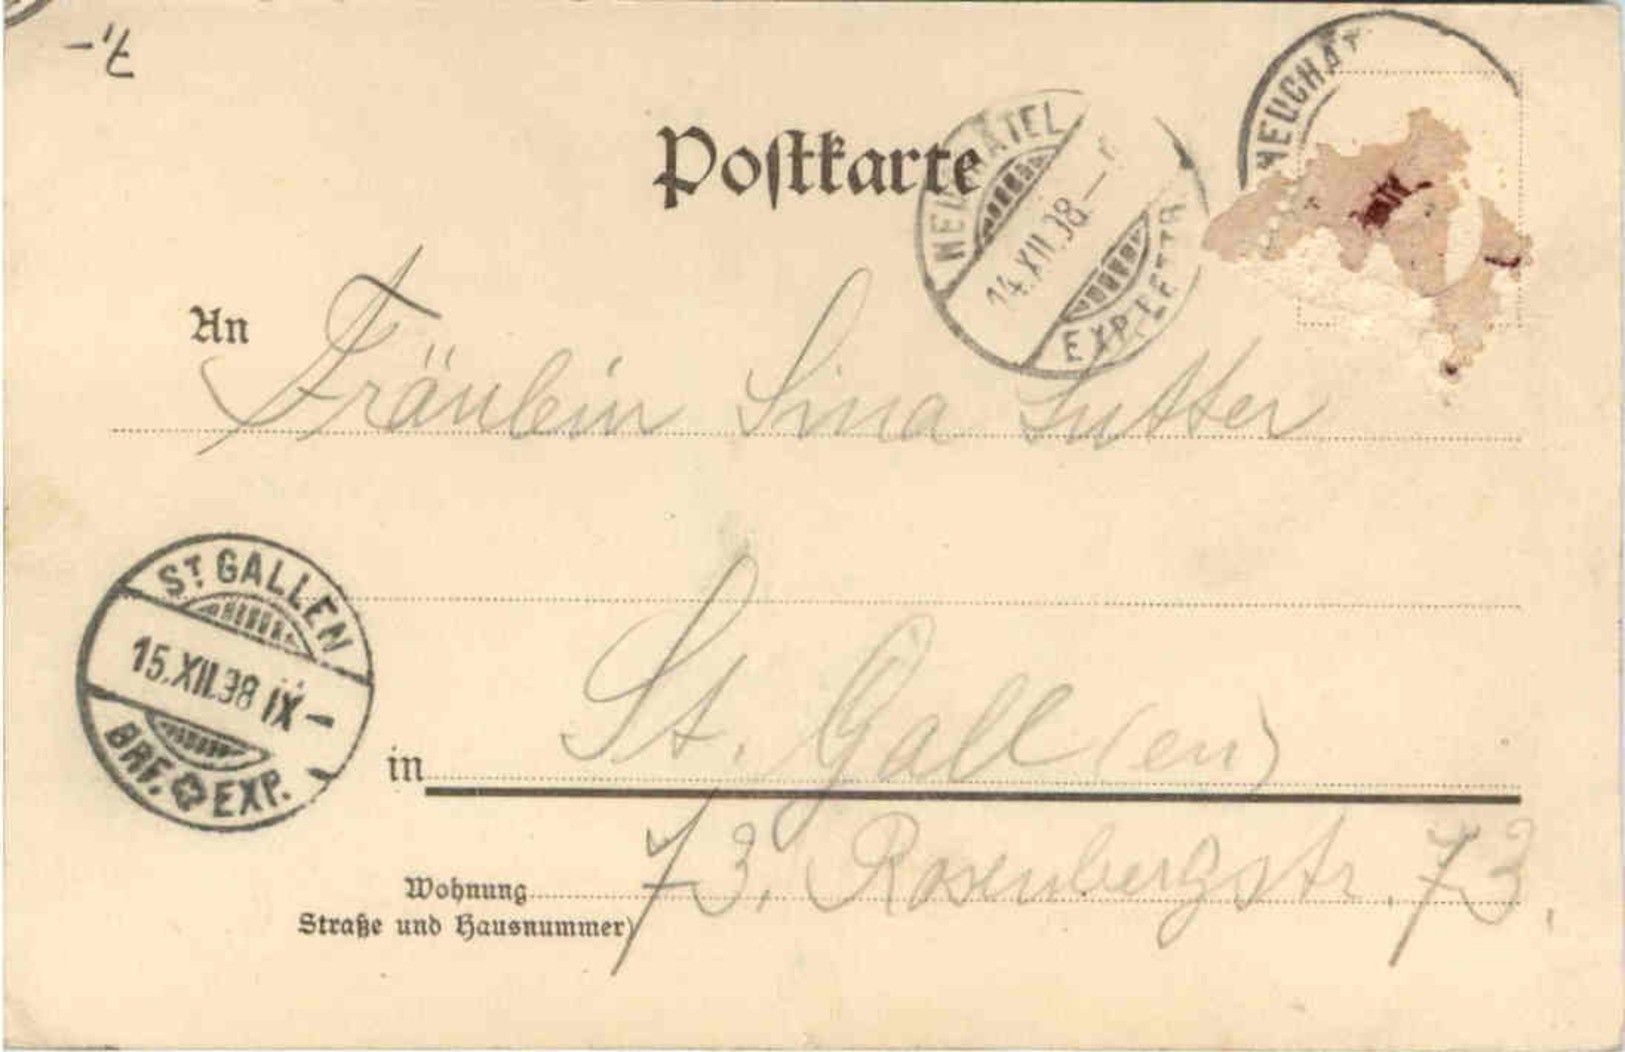 7.-
Postkarte
NEUCHÂTEL
14.XII.98–
EXP. LETTR
NEUCHÂT
An
Fräulein Lina Sutter
ST. GALLEN
15.XII.98 IX–
BRF. EXP.
in St. Gall (en)
Wohnung 73. Rosenbergstr. 73.
Straße und Hausnummer)